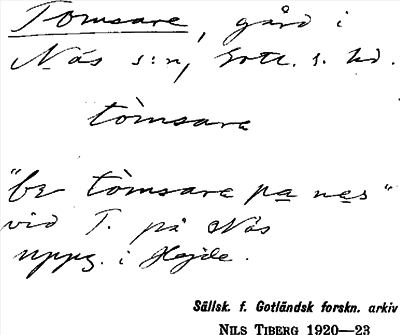 Tomsare, gård i
Näs s:n, Gotl. s. hd.
tòmsara
"br tòmsara pa nes"
vid T. på Näs
uppg. i Hejde.
Sällsk. f. Gotländsk forskn. arkiv
NILS TIBERG 1920—23